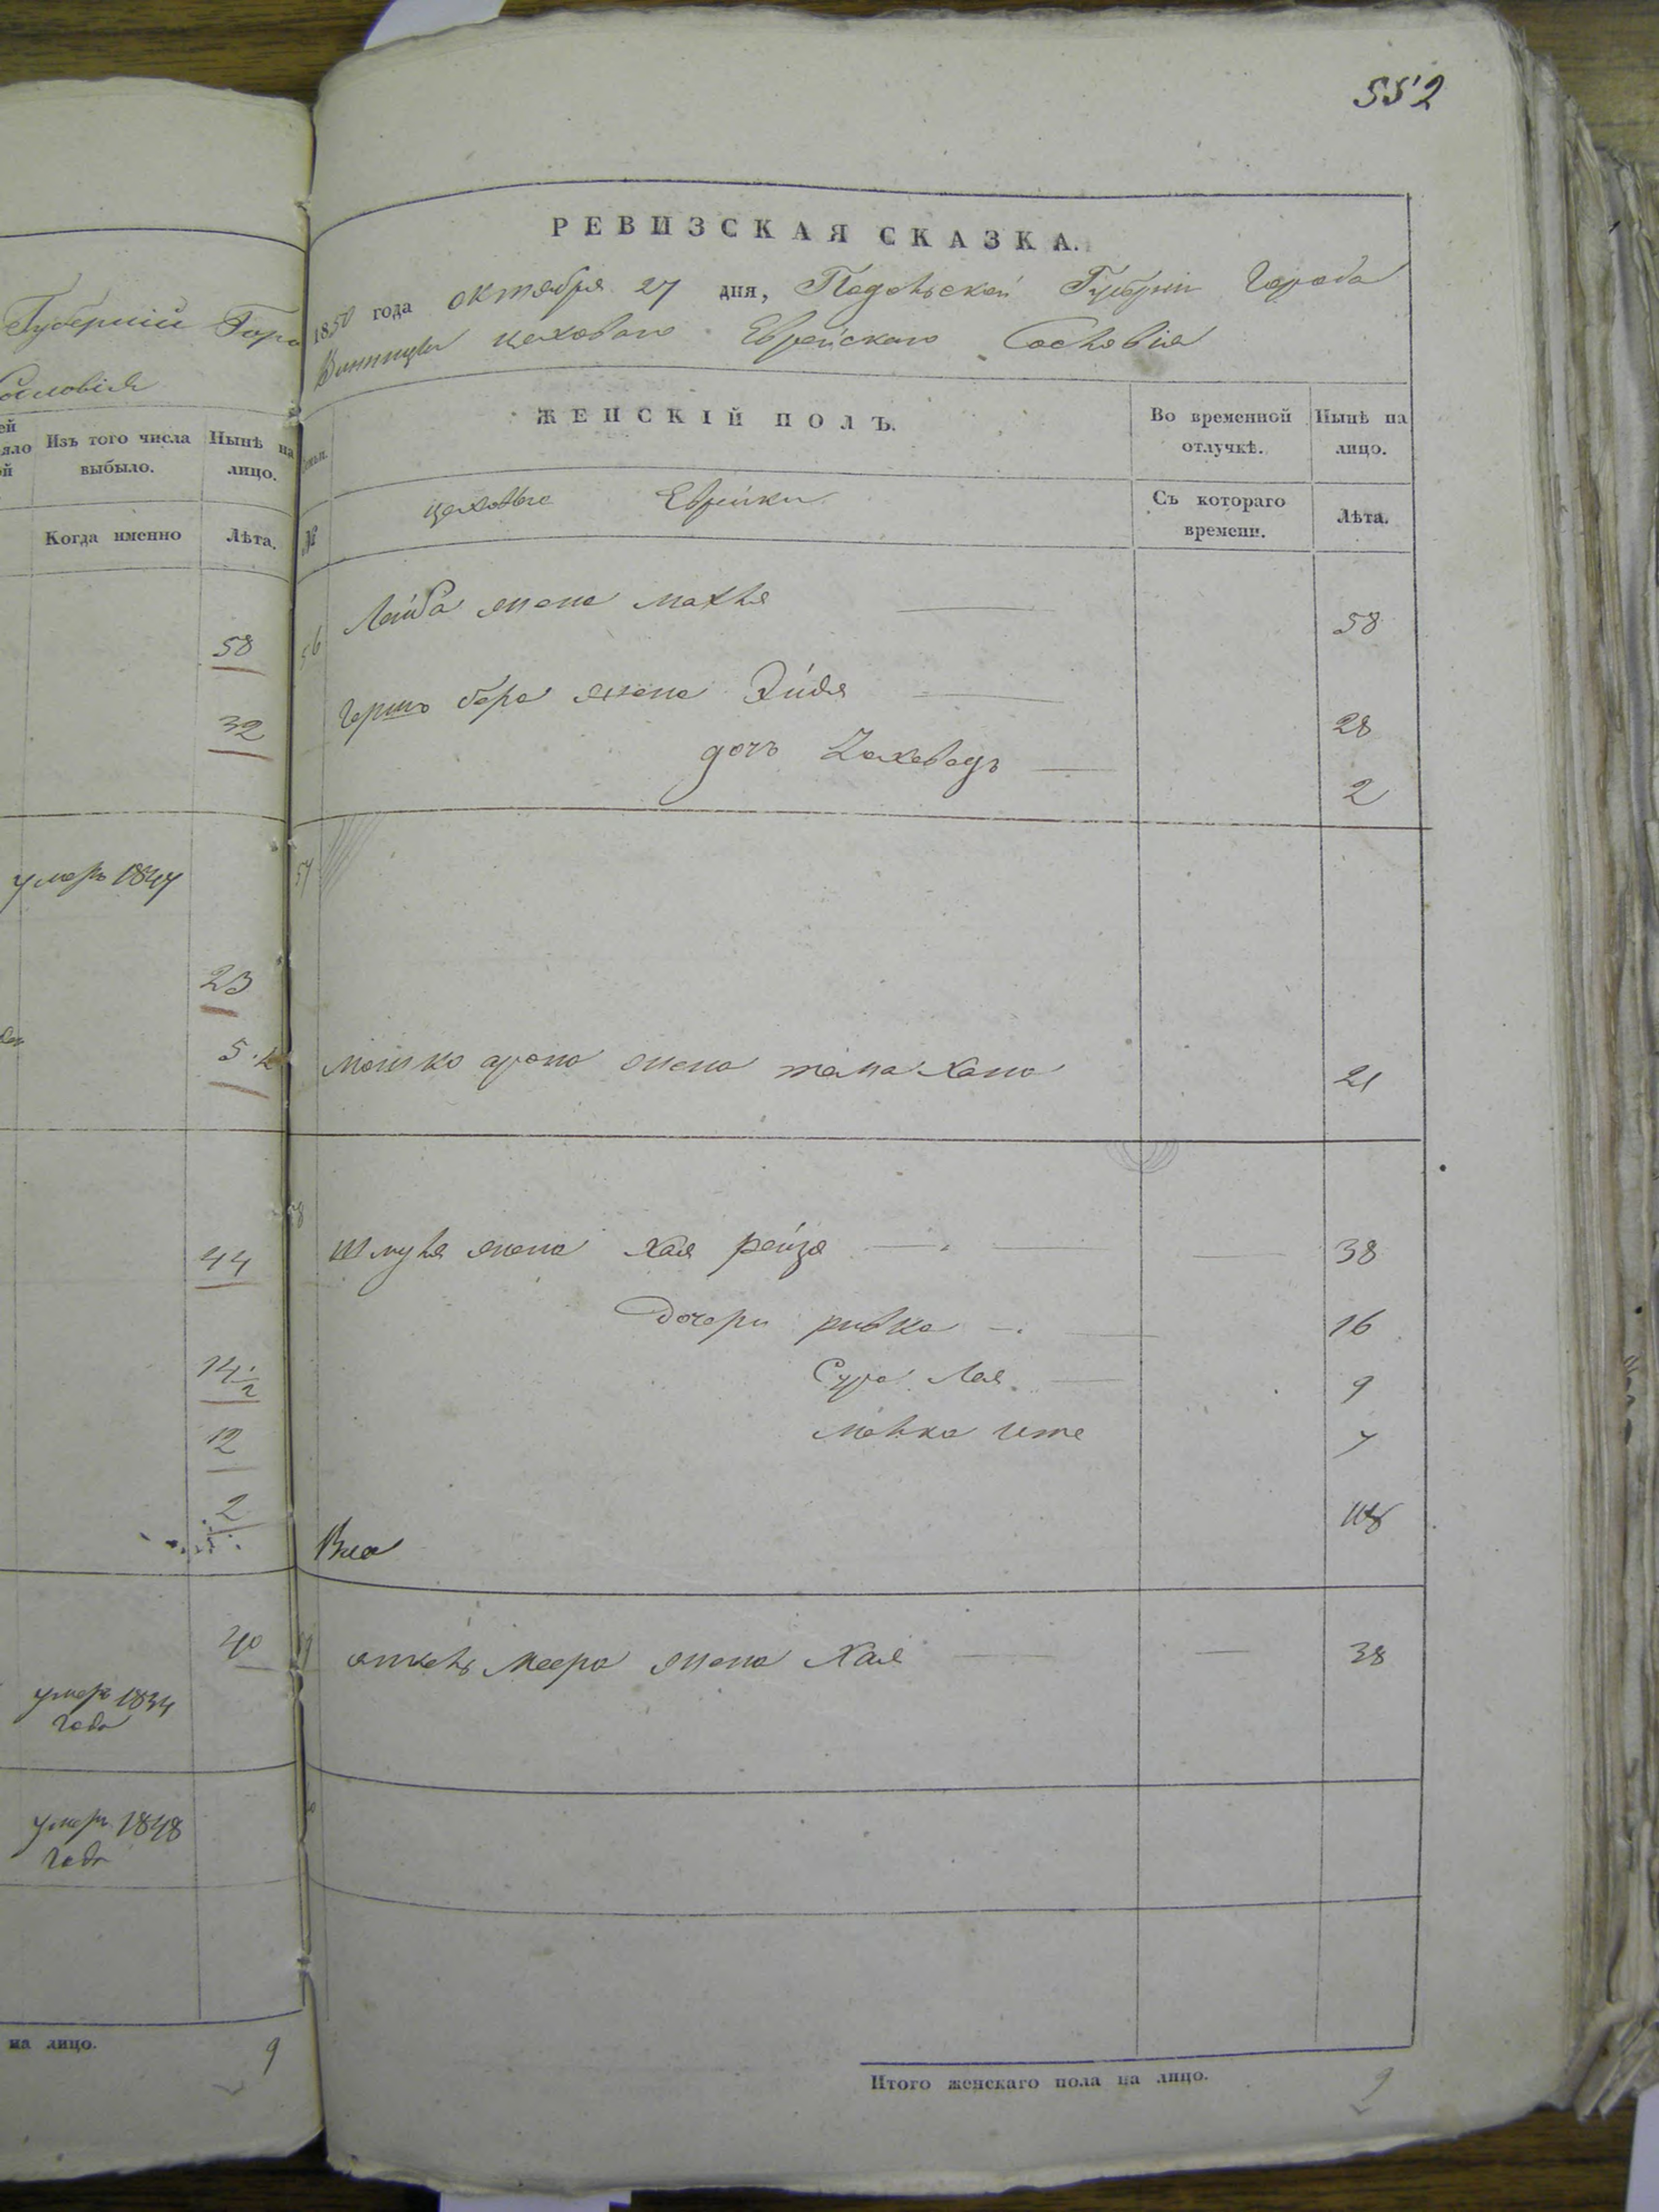 Губерніи Горо
Сословія
ей
яло
ой
Изъ того числа
выбыло.
Нынѣ на
лицо.
Когда именно
Лѣта.
58
32
умеръ 1847
23
44
14 1/2
12
2
40
умеръ 1834
года
умеръ 1848
года
на лицо.
9
552
РЕВИЗСКАЯ СКАЗКА.
1850 года октября 27 дня, Подольской Губерніи Города
Винницы цеховаго Еврейскаго Сословія
ЖЕНСКІЙ ПОЛЪ.
Во временной
отлучкѣ.
Нынѣ на
лицо.
№
цеховые Еврейки
Съ котораго
времени.
Лѣта.
56
Лейба жена махля
58
Герша бера жена Эйдя
28
дочь
2
57
мошко арона жена Хана
21
Шмуля жена хая рейзя
38
Дочери ривка
16
Сура Лая
9
малка ита
7
38
меера жена Хая
Итого женскаго пола на лицо.
9